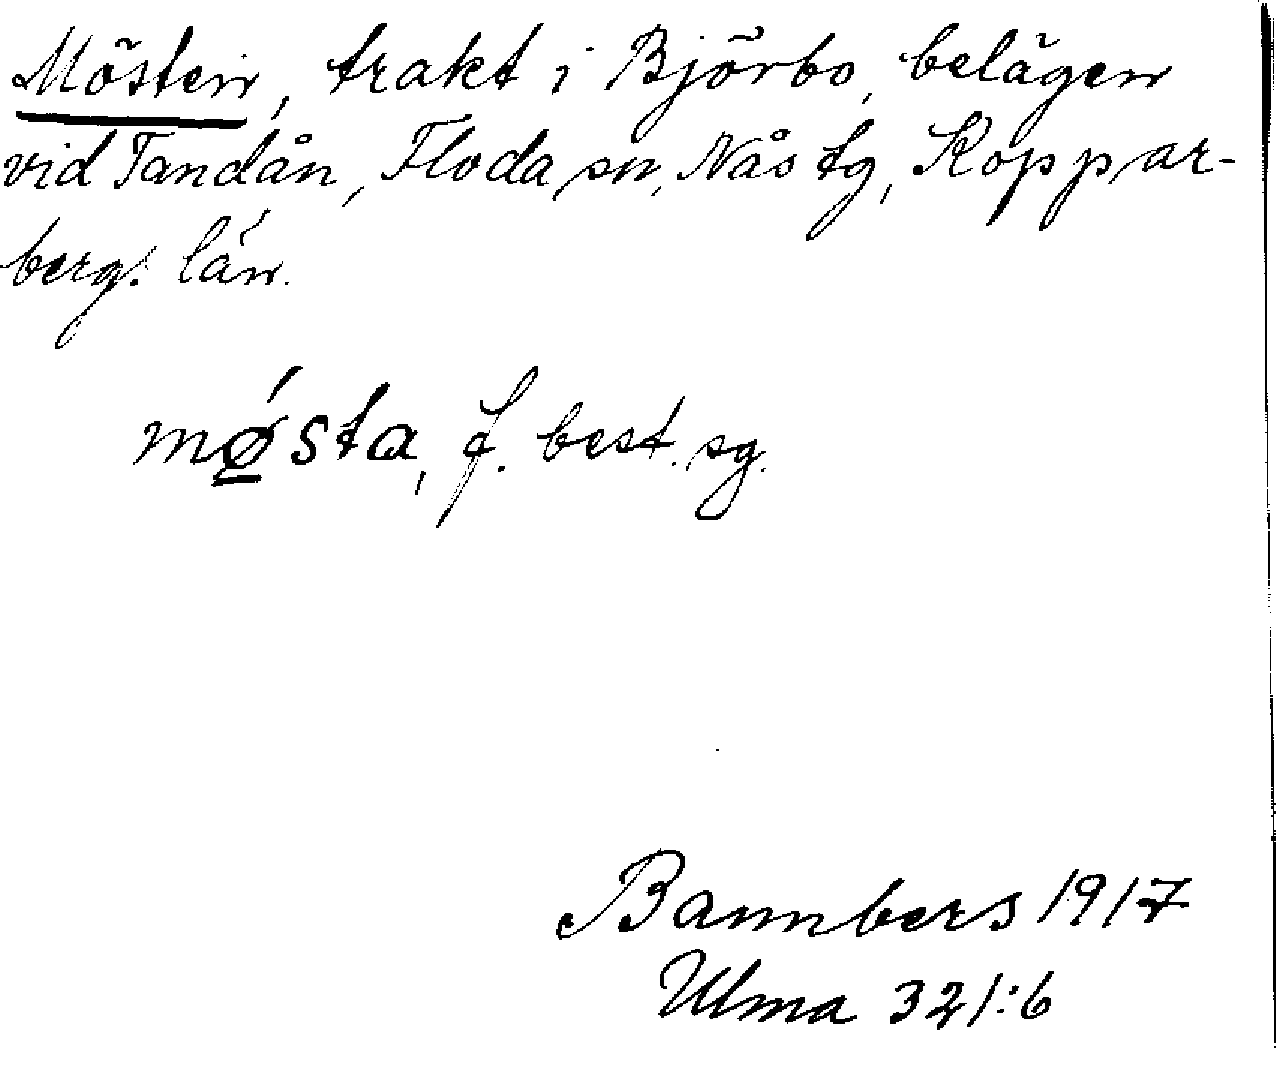 Mösten, trakt i Björbo, belägen
vid Tandån, Floda sn, Nås tg, Koppar-
berg. län.
mǿ̲sta, f. best. sg.
Bannbers 1917
Ulma 321:6